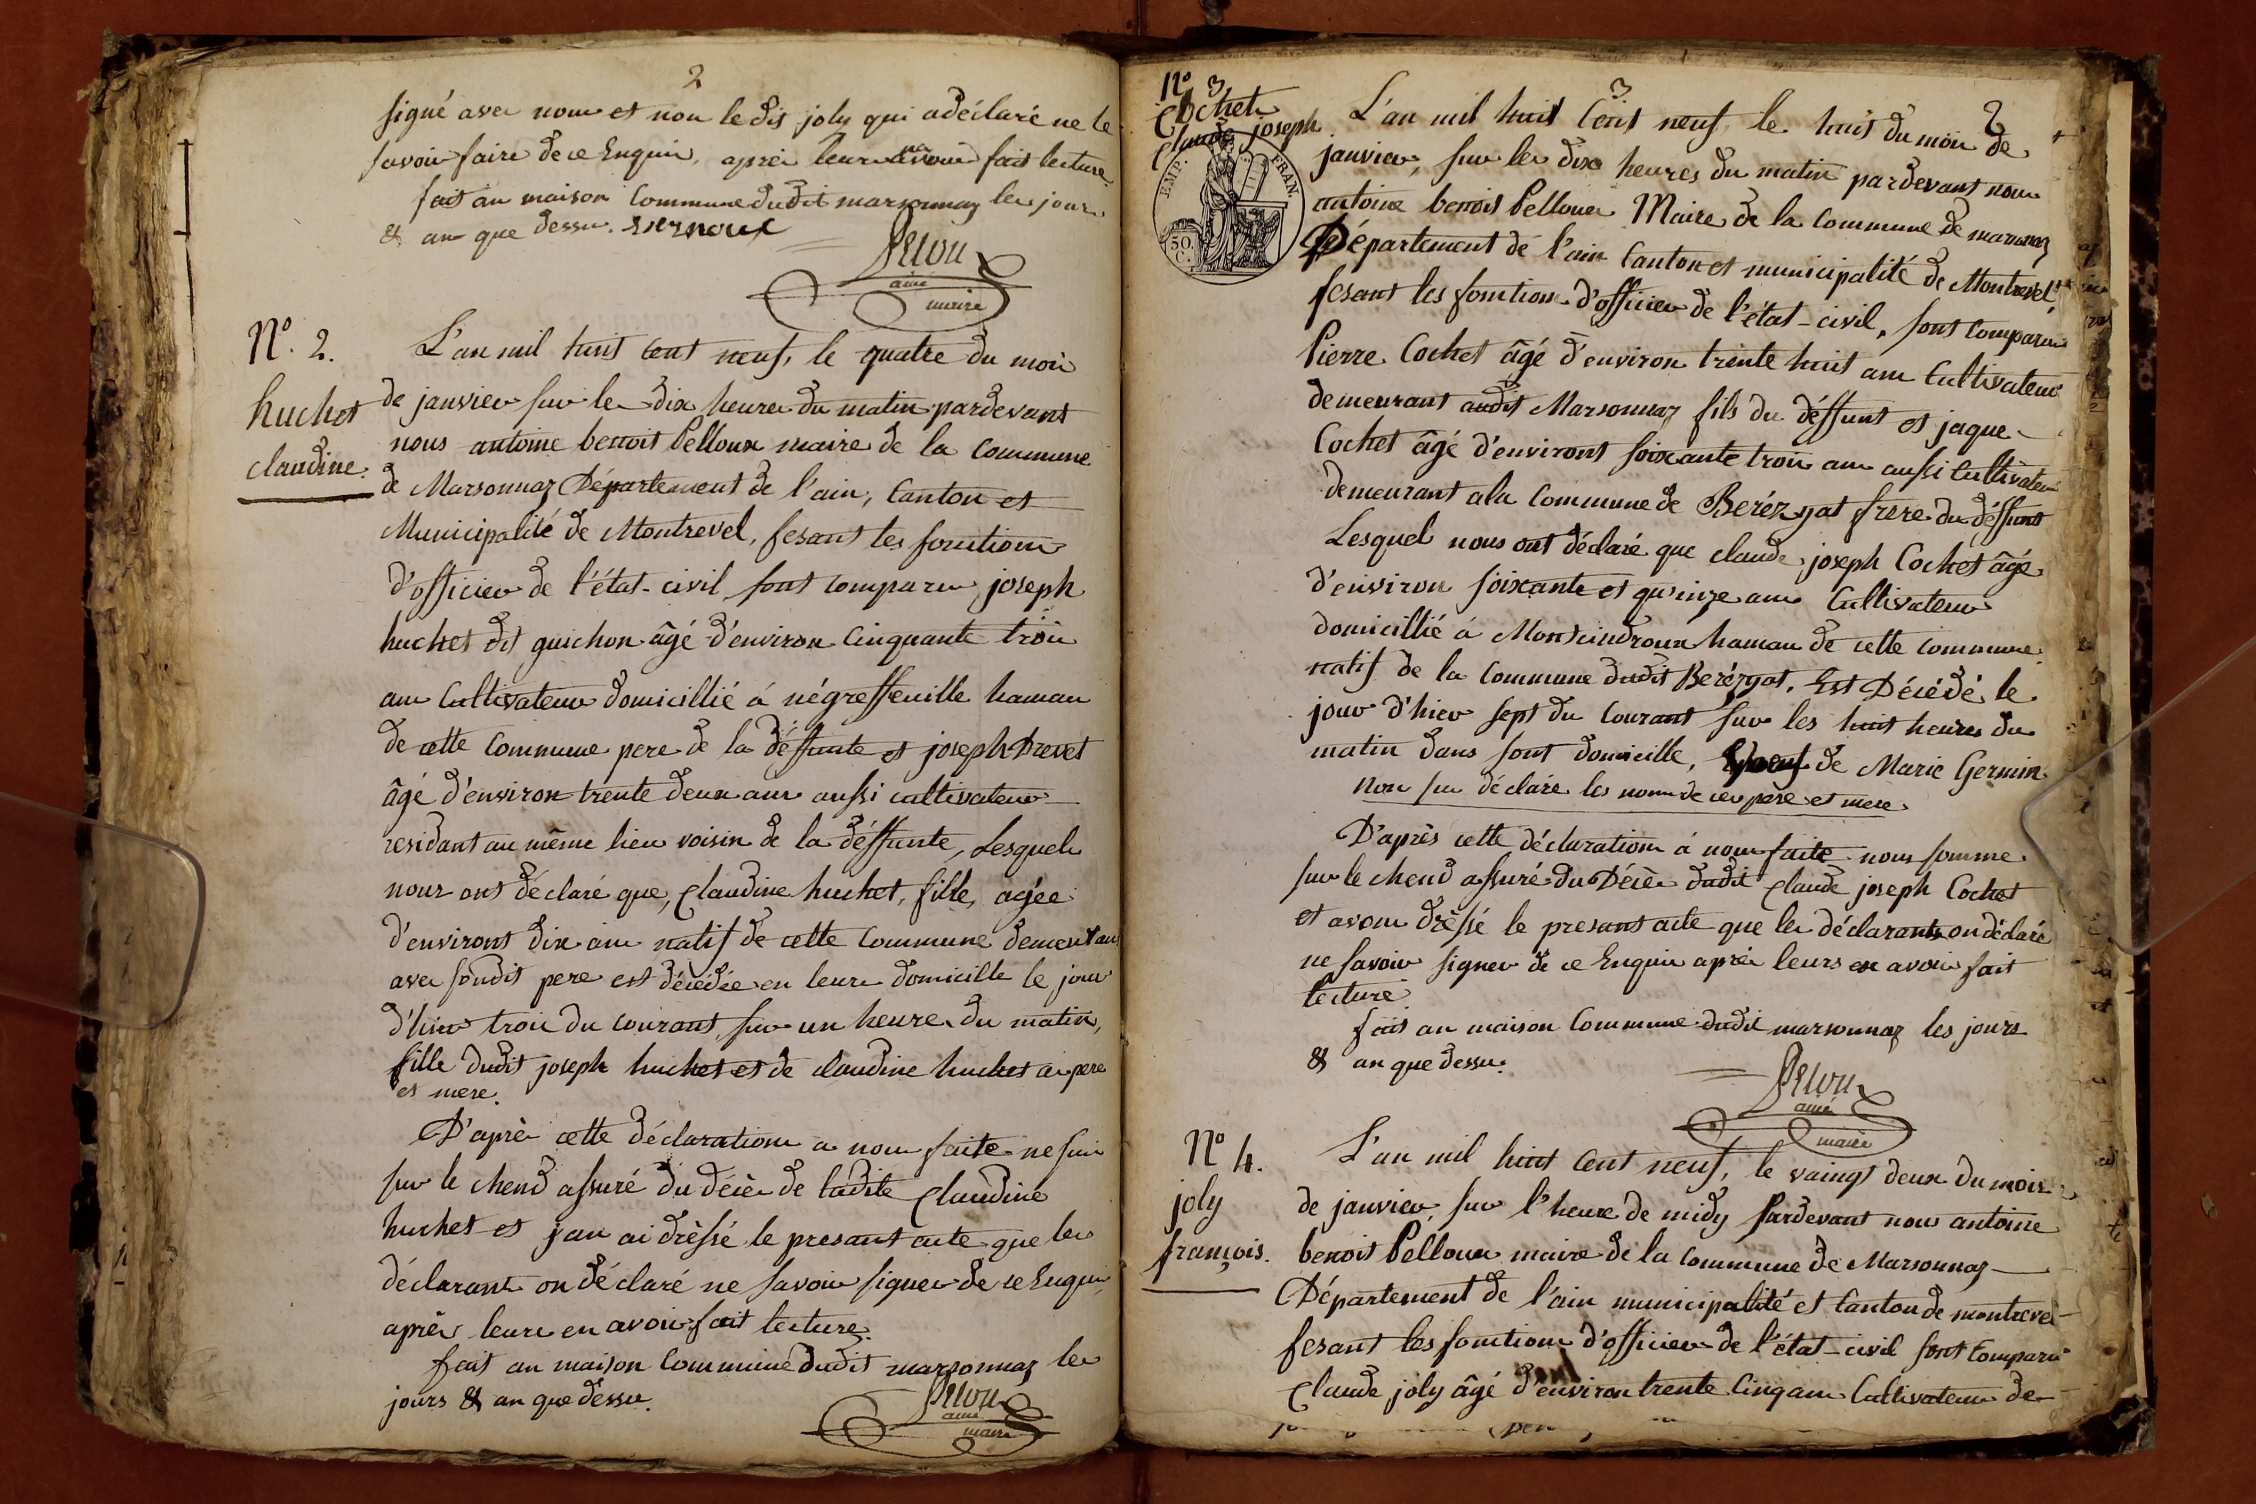 2
signé avec nous et non le dis joly qui a déclaré ne le
savoir faire de ce Enquis, après leur en avoir fait lecture.
fait au maison Commune dudit marsonnaz les jour
& an que dessu.
Pelou
ainé
maire
N.° 2.
huchet
claudine.
L'an mil huit cent neuf, le quatre du mois
de janvier sur les dix heures du matin pardevant
nous antoine benoit Pelloux maire de la commune
de Marsonnaz Département de l'ain, Canton et
Municipalité de Montrevel, fesant les fonctions
d'officier de l'état-civil sont comparu joseph
huchet dit guichon âgé d'environ Cinquante trois
ans Cultivateur domicillié á négreffeuille hamau
de cette Commune pere de la déffunte et joseph Drevet
âgé d'environ trente deux ans aussi cultivateur
residant au même lieu voisin de la déffunte, Lesquels
nous ont déclaré que, Claudine huchet, fille, agée
d'environt dix ans natif de cette Commune demeurant
avec sondit pere est décédée en leurs domicille le jour
d'hier trois du courant, sur un heure du matin,
fille dudit joseph huchet et de claudine huchet ces pere
et mere.
D'après cette déclaration a nous faite ne suis
sur le chend assuré du décès de ladite Claudine
huchet et jan ai drèssé le presant acte que les
déclarant on déclaré ne savoir signer de ce Enquis,
après leurs en avoir fait lecture.
fait au maison Commune dudit marsonnaz les
jours & an que dessu.
Pelou
ainé
maire
N° 3
Cochet
Claude joseph
EMP. FRAN.
50.
C.
3
2
L'an mil huit Cent neuf le huit du mois de
janvier, sur les dix heures du matin pardevant nous
antoine benoit Pelloux Maire de la Commune de marsonnaz
Département de l'ain Canton et municipalité de Montrevel
fesant les fonctions d'officier de l'état-civil, sont comparu
Pierre Cochet âgé d'environ trente huit ans Cultivateur
demeurant audit Marsonnaz fils du déffunt et jaque
Cochet âgé d'environt soixante trois ans aussi Cultivateur
demeurant a la Commune de Beréziat frere du déffunt
Lesquel nous ont déclaré que claude joseph Cochet âgé
d'environ soixante et quinze ans Cultivateur
domicillié á Montcindroux hamau de cette commune
natif de la Commune dudit Beréziat, Est Décédé le
jour d'hier sept du Courant sur les huit heures du
matin dans sont domicille, de Marie Germin
Non su déclaré les noms de ces père et mere.
D'après cette déclaration á nous faite nous somme
sur le chend assuré du Décès dudit Claude joseph Cochet
et avons drèssé le presant acte que les déclarants on déclaré
ne savoir signer de ce Enquis après leurs en avoir fait
lecture.
fait au maison Commune dudit marsonnaz les jours
& an que dessu.
Pelou
ainé
maire
N° 4.
joly
françois.
L'an mil huit Cent neuf, le vaingt deux du mois
de janvier, sur l'heure de midy Pardevant nous antoine
benoit Pelloux maire de la Commune de Marsonnaz
Département de l'ain municipalité et Canton de montrevel
fesant les fonctions d'officier de l'état-civil sont Comparu
Claude joly âgé d'environ trente Cinq ans Cultivateur de